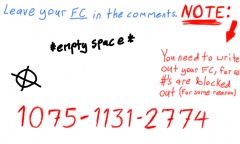 Leave your FC in the comments. NOTE:
*empty space*
You need to write
out your FC, for as
#'s are blocked
out (for some reason)
1075-1131-2774